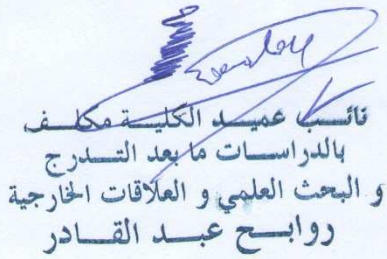 نائب عميد الكلية مكلف
بالدراسات ما بعد التدرج
و البحث العلمي و العلاقات الخارجية
روابح عبد القادر